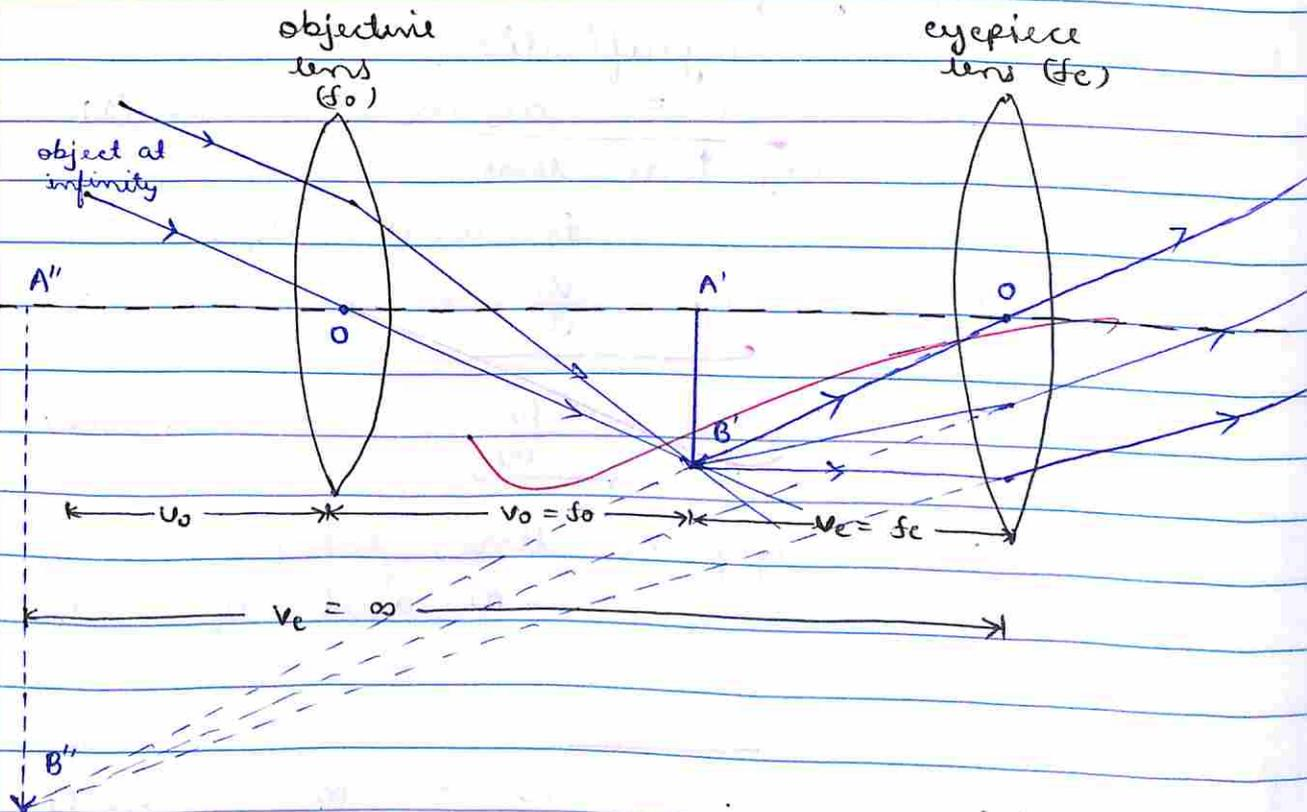 objective
lens
(fo)
eyepiece
lens (fe)
object at
infinity
A"
A'
O
O
B'
uo
vo = fo
ve = fe
ve = ∞
B"